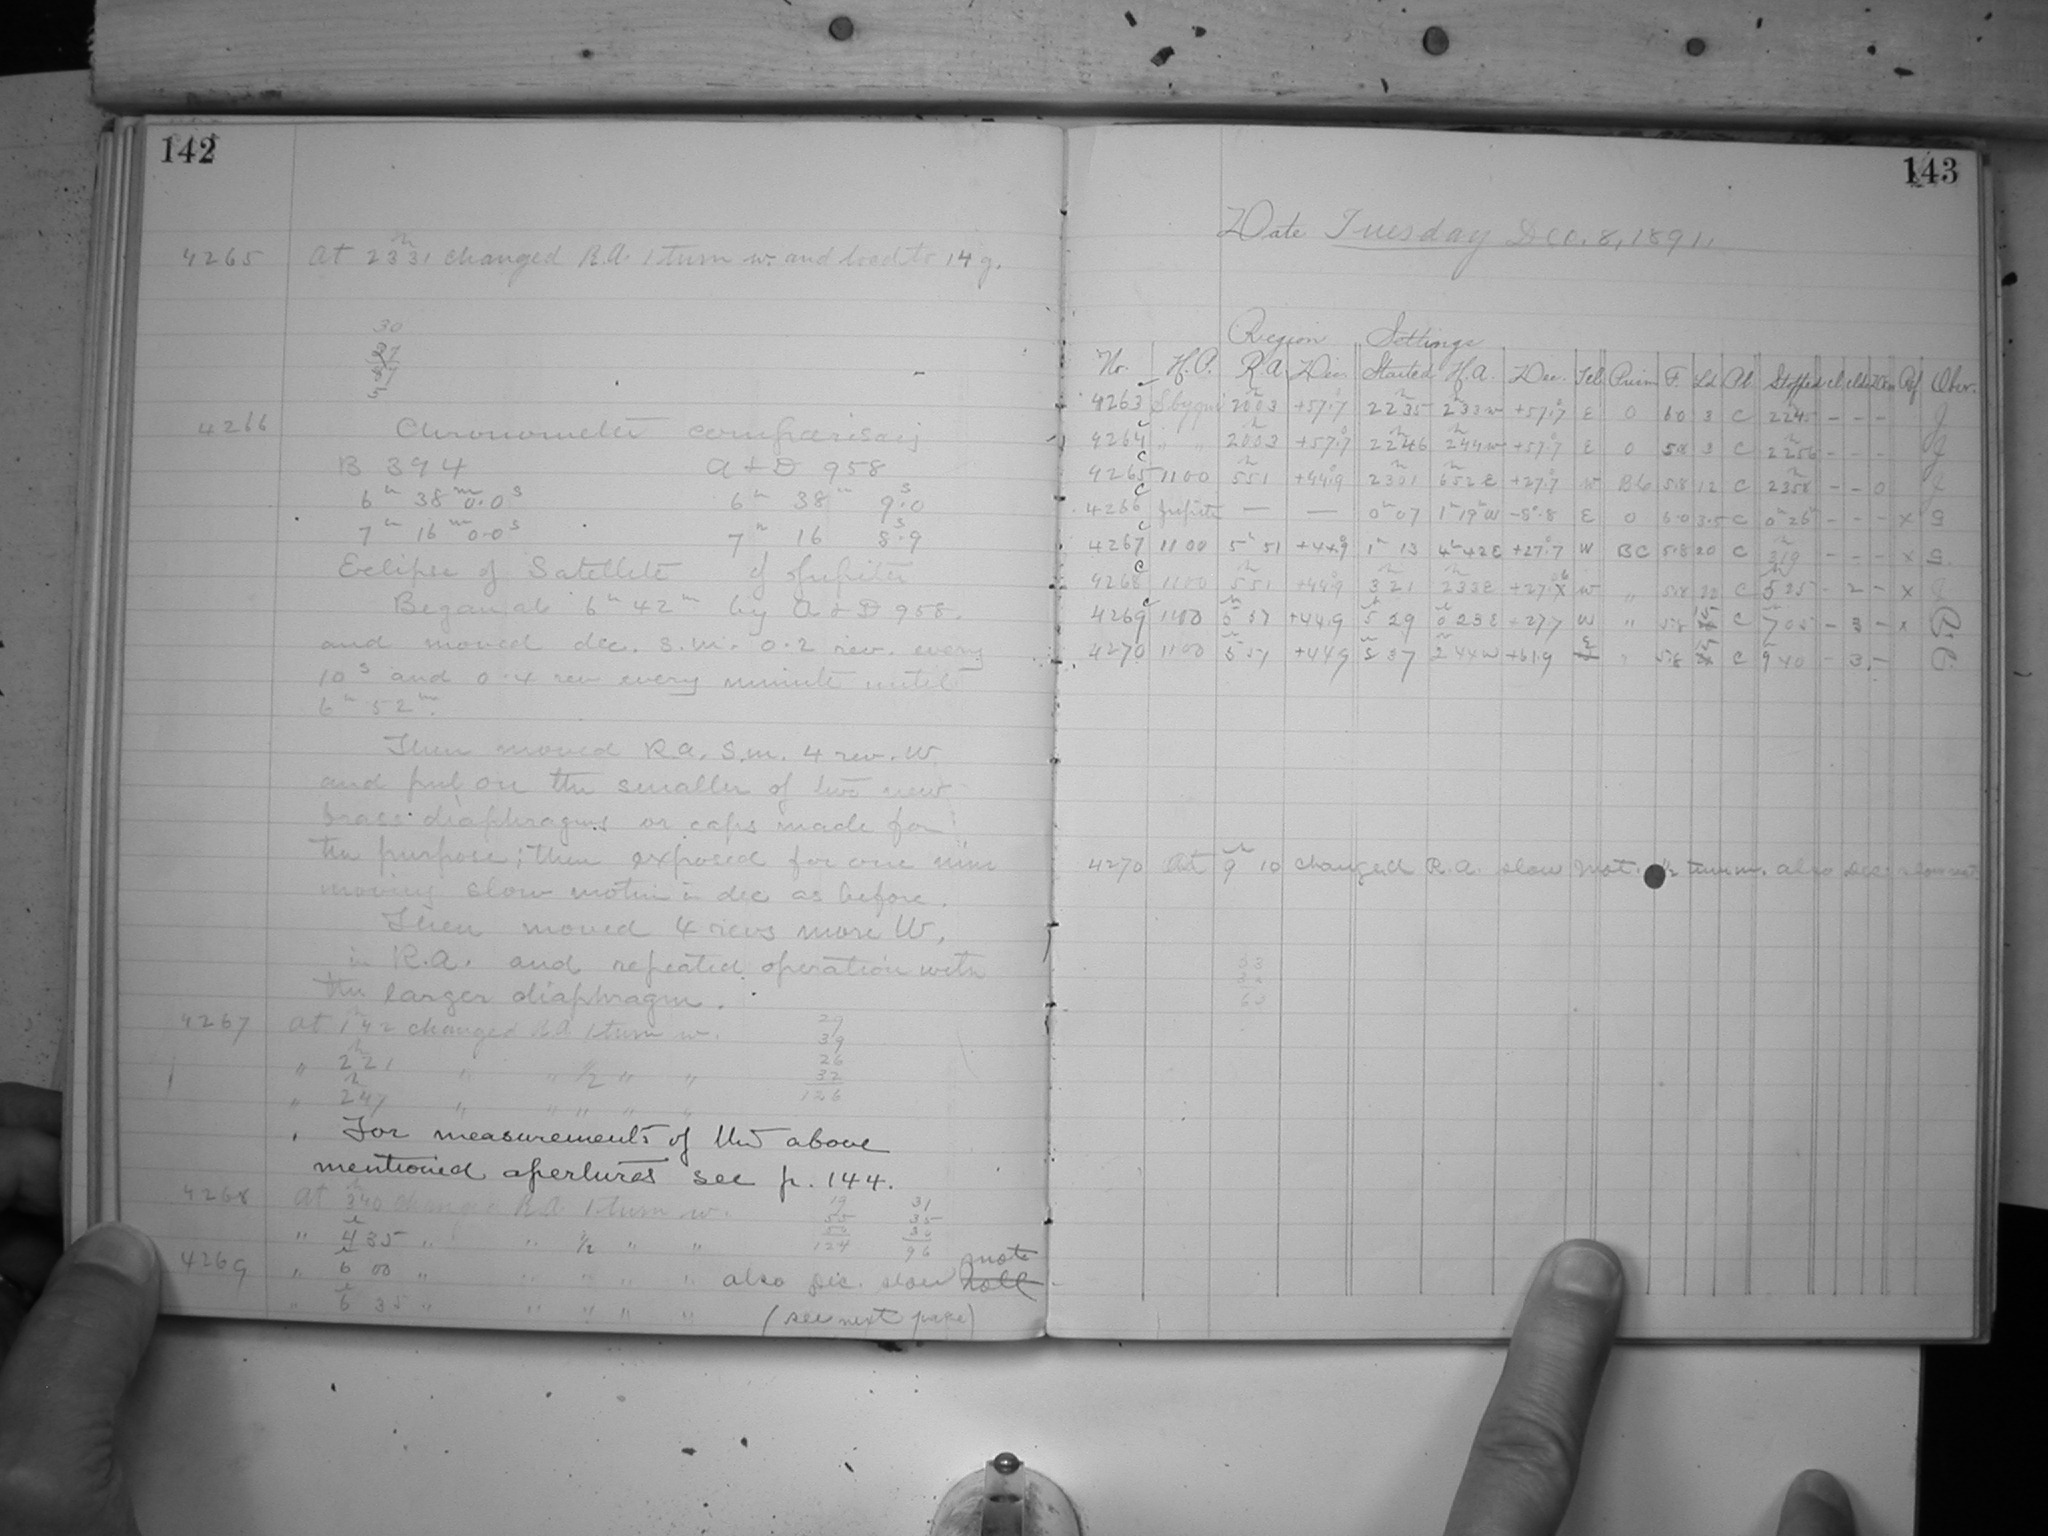 142
4265 At 23h31 changed R.A. 1 turn w. and load to 14 g.
30
27
57
4266 Chronometer comparisons
B 394 A & D 958
6h 38m 0.0s 6h 38m 9.0s
7h 16m 0.0s 7h 16 8.9s
Eclipse of Satellite of Jupiter
Began at 6h 42m by A & D 958.
and moved dec. s.m. 0.2 rev. every
10s and 0.4 rev every minute until
6h 52m.
Then moved R.A. S.m. 4 rev. W.
and put on the smaller of two new
brass diaphragms or caps made for
the purpose; then exposed for one min
moving slow motion in dec as before.
Then moved 4 revs more W.
in R.A. and repeated operation with
the larger diaphragm.
4267 At 1h42 changed R.A. 1 turn w. 29
39
" 2h21 " " 1/2 " " 26
32
" 2h47 " " " " " 126
For measurements of the above
mentioned apertures see p. 144.
4268 At 3h40 changed R.A. 1 turn w. 19 31
55 35
" 4h35 " " 1/2 " " 50 30
124 96
4269 " 6h00 " " " " " also Dec. slow mote
" 6h35 " " " " " (see next page)
143
Date Tuesday Dec. 8, 1891.
Region Settings
No. H.P. R.A. Dec. Started H.A. Dec. Tel Prism F. Ld Pl Stopped Cl Obsr.
4263 20h03 +57°.7 2235 2h33w +57°.7 E 0 60 3 C 2245 - - - J
4264 " " 20h03 +57°.7 22h46 2h44w +57°.7 E 0 58 3 C 22h56 - - - J
4265 1100 5h51 +44°.9 2301 6h52E +27°.7 w 58 12 C 23h58 - - 0 J
4266 Jupiter — — 0h07 1h19mW -8°.8 E 0 6.0 3.5 C 0h26 - - - x S
4267 1100 5h51 +44°.9 1h 13 4h42E +27°.7 W BC 5.8 20 C 3h19 - - - x S.
4268 1100 5h51 +44°.9 3h21 2h33E +27°. w " 5.8 22 C 5h25 - 2 - x J
4269 1100 5h51 +44.9 5h29 0h23E +27.7 W " 5.8 C 7h05 - 3 - x
4270 1100 5h51 +44.9 2h44w +61.9 E " 5.8 C 9h40 - 3 -
4270 At 9h 10 changed R.A. slow mot. 1/2 turn w. also Dec. slow mot.